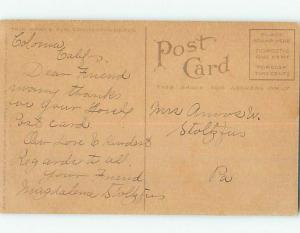 THIS SPACE FOR CORRESPONDENCE
Coloma
Califor.
Dear Friend
many thanks
for your lovely
Post card.
Our Love & kindest
Regards to all.
your Friend
Magdalena Stoltzfus
Post
Card
THIS SPACE FOR ADDRESS ONLY
PLACE
STAMP HERE
DOMESTIC
ONE CENT
FOREIGN
TWO CENTS
Mrs Amos W.
Stoltzfus
Pa